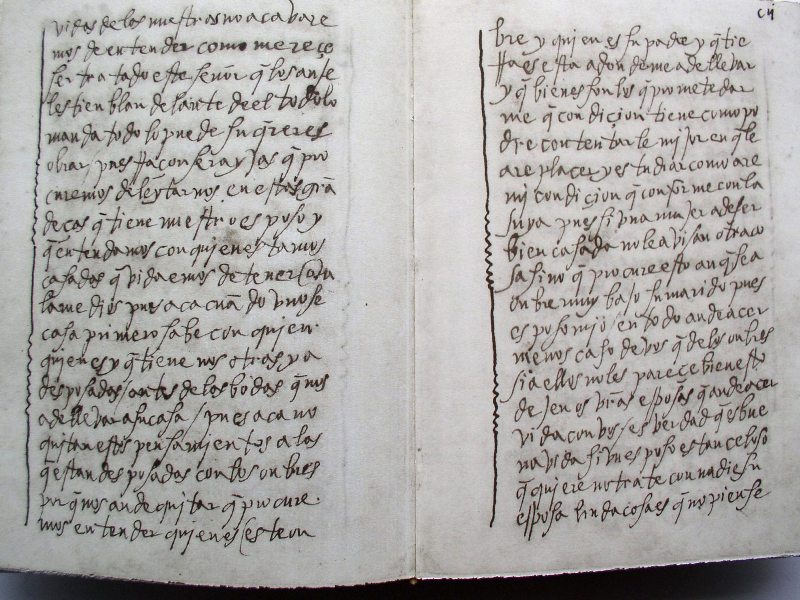 vidas de las nuestras no acavare
mos de entender como mereçe
ser tratado este señor q̄ los anje
les tienblan delante de el todo lo
manda todo lo puede su q̄rer es
obrar pues sera yjas q̄ pro
curemos deleytarnos en estas grā
deças q̄ tiene nuestro esposo y
q̄ entendamos con quien estamos
casadas q̄ vida emos de tener o va
lame dios pues aca cuādo uno se
casa primero sabe con quien
quien es y q̄ tiene nosotras ya
desposadas / antes de las bodas q̄ nos
a de llevar a su casa / pues aca no
quitan estos pensamientos a las
q̄ estan desposadas con los onbres
por q̄ nos an de quitar q̄ procure
mos entender quien es este on
bre y quien es su padre y q̄ tie
rra es esta adonde me a de llevar
y q̄ bienes son los q̄ promete dar
me q̄ condiçion tiene como po
dre contentarle mijor en q̄ le
are plaçer y estudiar como are
mi condiçion q̄ conforme con la
suya pues si una mujer a de ser
bien casada no le avisan otra co
sa sino q̄ procure esto anq̄ sea
onbre muy bajo su marido pues
esposo mio / en todo an de açer
menos caso de vos q̄ de los onbres
si a ellos no les pareçe bien esto
dejen os vr̄as esposas q̄ an de açer
vida con vos / es verdad q̄ es bue
na vida si un esposo es tan çeloso
q̄ quiere no trate con nadie su
esposa linda cosa es q̄ no piense